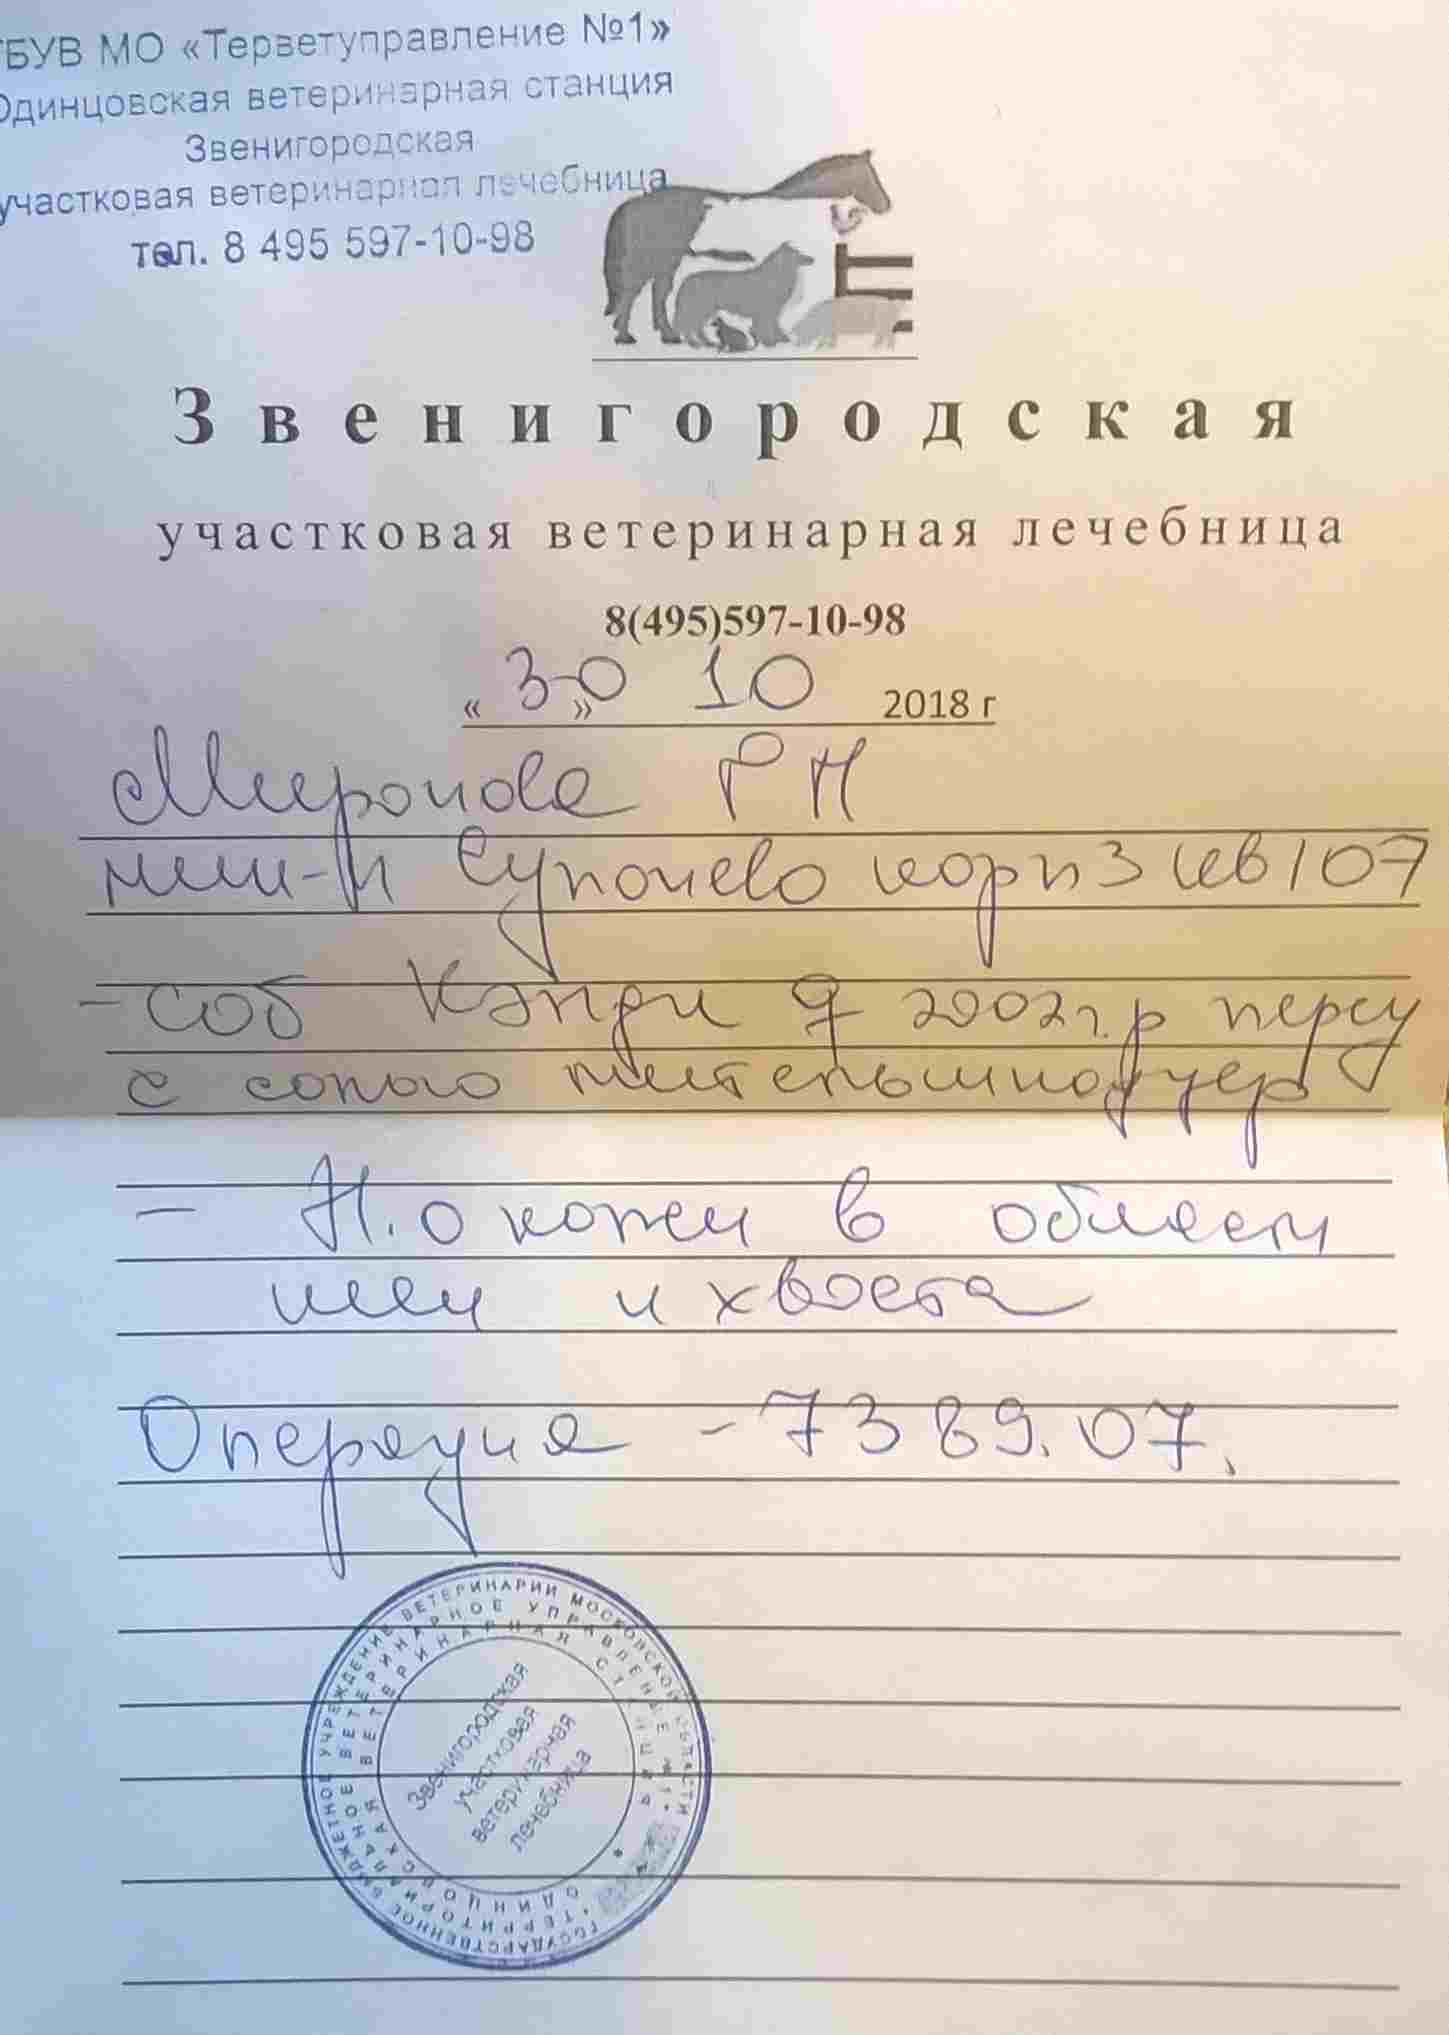 ГБУВ МО «Терветуправление №1»
Одинцовская ветеринарная станция
Звенигородская
участковая ветеринарная лечебница
тел. 8 495 597-10-98
Звенигородская
участковая ветеринарная лечебница
8(495)597-10-98
« 30 » 10 2018 г
Миронова Р Н
мкш-н Супонево корп 3 кв 107
- соб Кэнди ♀ 2002 г.р
с соп
- Н.о кожи в области
шеи и хвоста
Операция - 7389.07.
ГОСУДАРСТВЕННОЕ БЮДЖЕТНОЕ УЧРЕЖДЕНИЕ ВЕТЕРИНАРИИ МОСКОВСКОЙ ОБЛАСТИ
ТЕРРИТОРИАЛЬНОЕ ВЕТЕРИНАРНОЕ УПРАВЛЕНИЕ №1
ОДИНЦОВСКАЯ ВЕТЕРИНАРНАЯ СТАНЦИЯ
Звенигородская
участковая
ветеринарная
лечебница